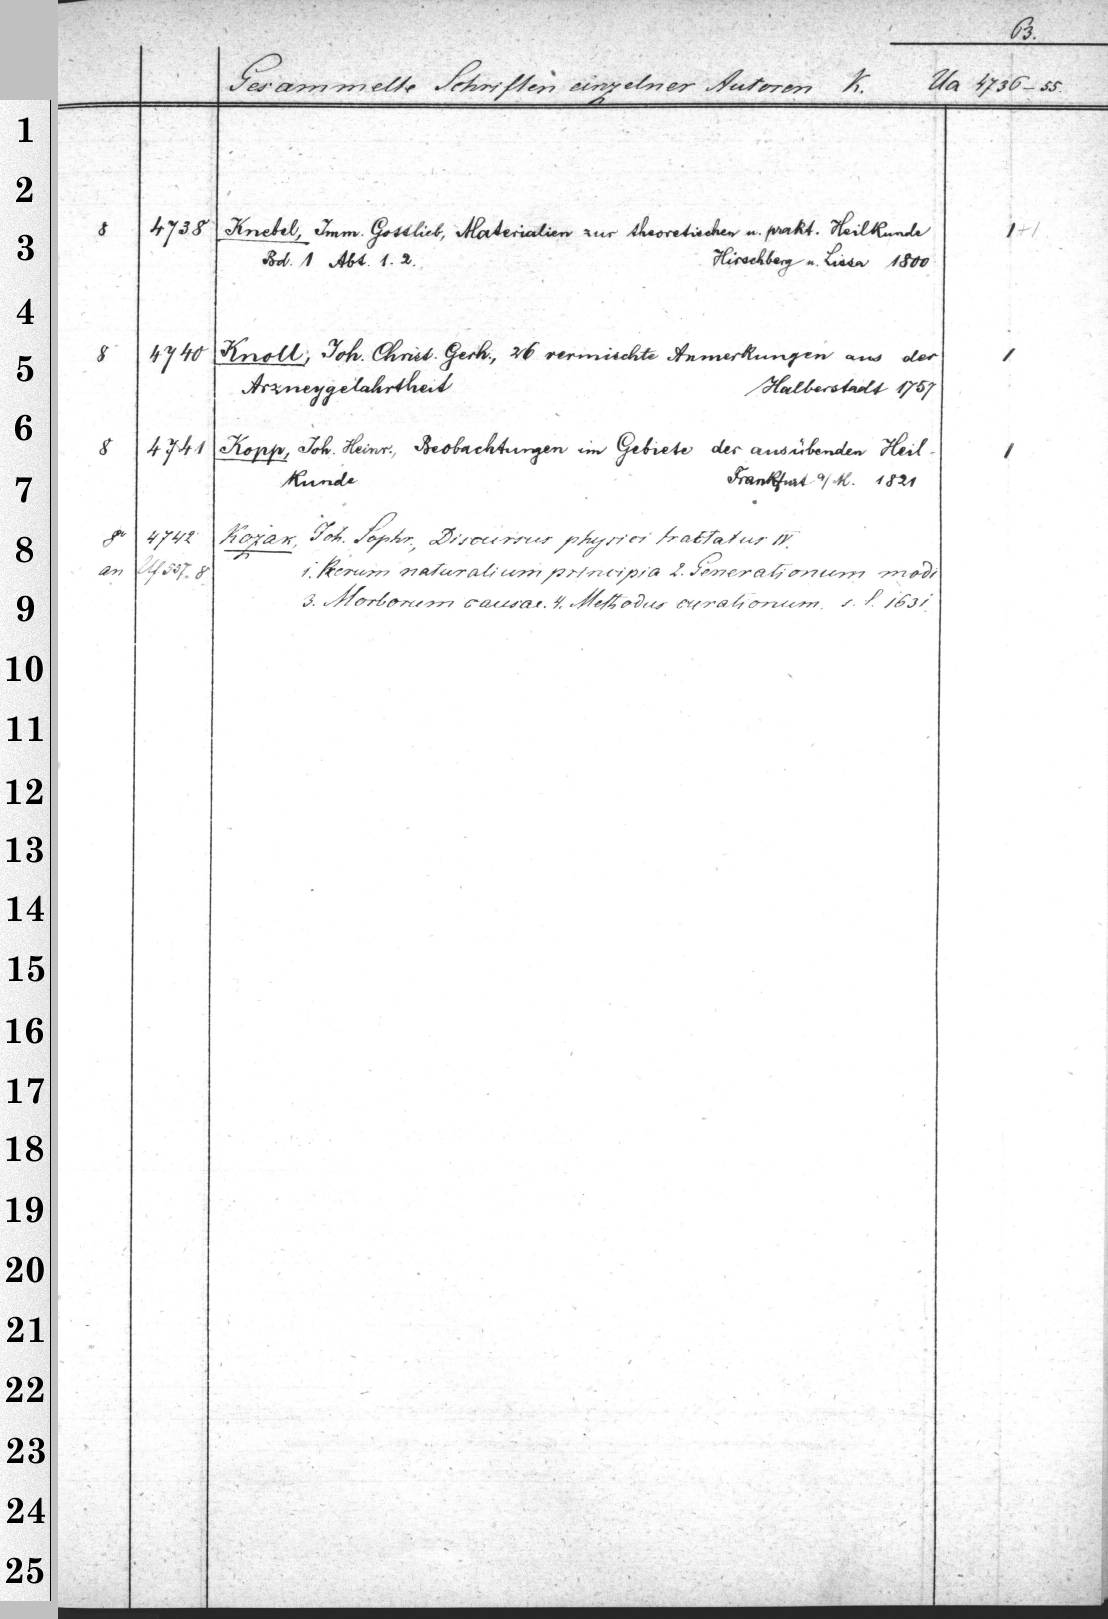 63.
Gesammelte Schriften einzelner Autoren K. Ua 4736-55.
1
2
8 4738 Knebel, Imm. Gottlieb, Materialien zur theoretischen u. prakt. Heilkunde 1+1
3
Bd. 1 Abt. 1. 2. Hirschberg u. Lissa 1800
4
8 4740 Knoll, Joh. Christ. Gerh., 26 vermischte Anmerkungen aus der 1
5
Arzneygelahrtheit Halberstadt 1757
6
8 4741 Kopp, Joh. Heinr., Beobachtungen im Gebiete der ausübenden Heil- 1
7
kunde Frankfurt a/M. 1821
8
4742 Kozak, Joh. Sophr., Discursus physici tractatus IV.
an 1. Rerum naturalium principia 2. Generationum modi
9
3. Morborum causae. 4. Methodus curationum. s. l. 1631.
10
11
12
13
14
15
16
17
18
19
20
21
22
23
24
25